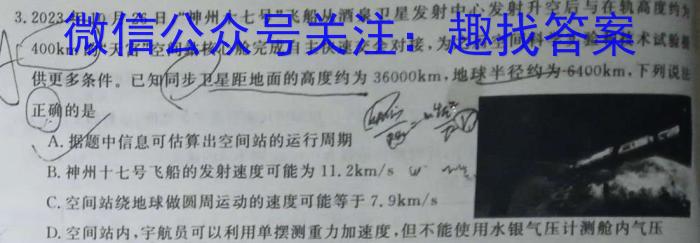 3.2023年 月26日"神州十七号"飞船从酒泉卫星发射中心发射升空后与在轨高度约为
微信公众号关注：趣找答案
400km 天宫"空间 核心舱完成自主快速交会对接，为 空间科 验 技术试验提
供更多条件。已知同步卫星距地面的高度约为 36000km，地球半径约为 6400km，下列说法
正确的是
A.据题中信息可估算出空间站的运行周期
B.神州十七号飞船的发射速度可能为 11.2km/s
C.空间站绕地球做圆周运动的速度可能等于 7.9km/s
D.空间站内，宇航员可以利用单摆测重力加速度，但不能使用水银气压计测舱内气压